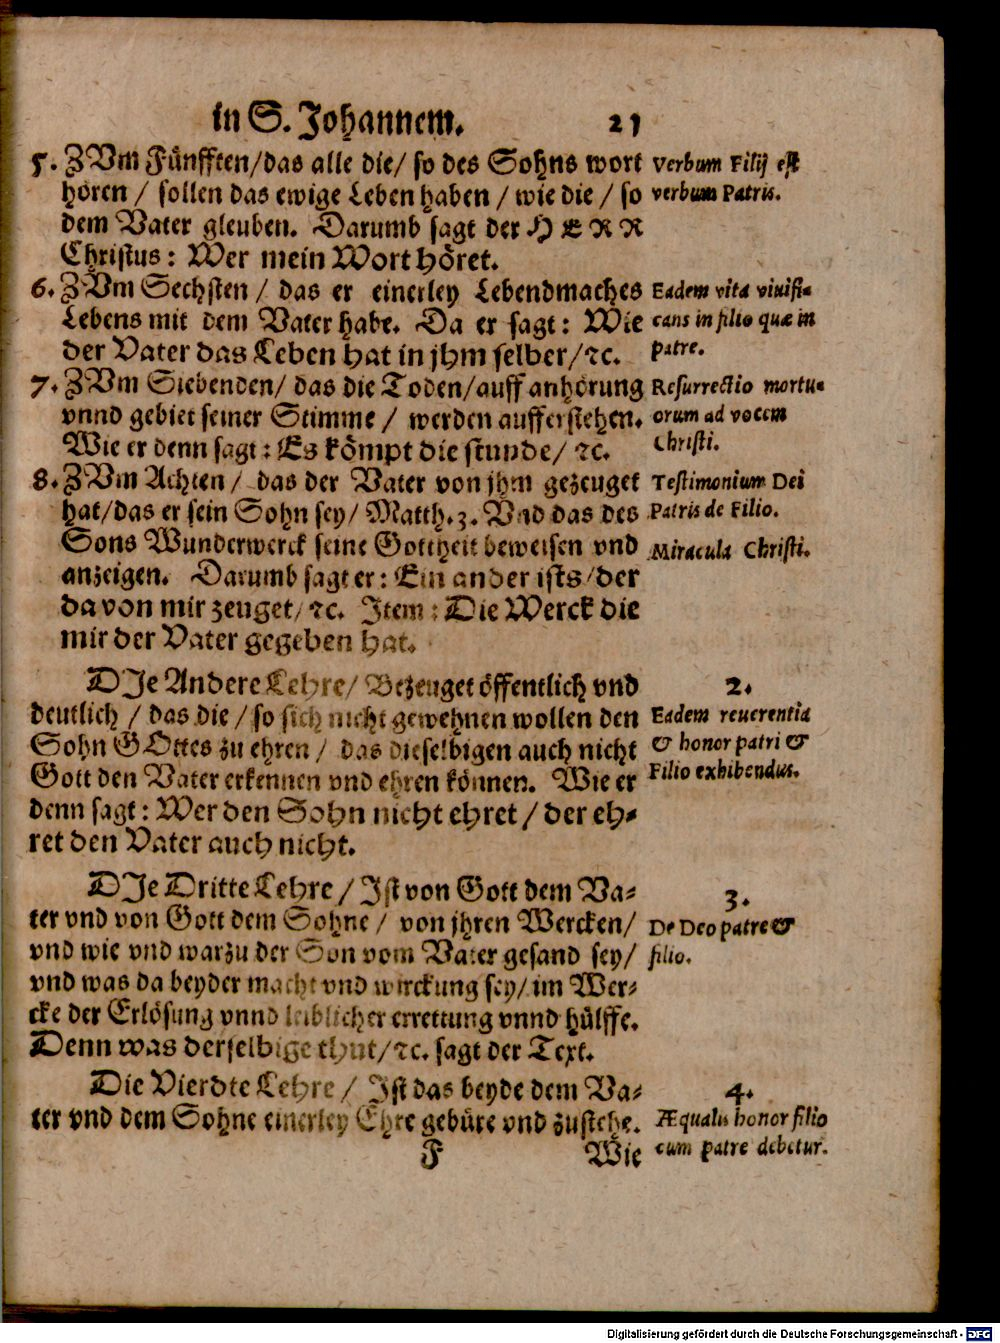 in S. Johannem. 21
5. ZVm Fünfften/das alle die/ so des Sohns wort
hören / sollen das ewige Leben haben / wie die / so
dem Vater gleuben. Darumb sagt der HERR
Christus: Wer mein Wort höret.
Verbum Filij est
verbum Patris.
6. ZVm Sechsten / das er einerley Lebendmaches
Lebens mit dem Vater habe. Da er sagt: Wie
der Vater das Leben hat in jhm selber/ꝛc.
Eadem vita viuifi-
cans in filio quæ in
patre.
7. ZVm Siebenden/ das die Toden/auff anhörung
vnnd gebiet seiner Stimme / werden aufferstehen.
Wie er denn sagt: Es kömpt die stunde/ ꝛc.
Resurrectio mortu-
orum ad vocem
Christi.
8. ZVm Achten / das der Vater von jhm gezeuget
hat/das er sein Sohn sey/ Matth. 3. Vnd das des
Sons Wunderwerck seine Gottheit beweisen vnd
anzeigen. Darumb sagt er: Ein ander ists/der
da von mir zeuget/ ꝛc. Item: Die Werck die
mir der Vater gegeben hat.
Testimonium Dei
Patris de Filio.
Miracula Christi.
DJe Andere Lehre/ Bezeuget öffentlich vnd
deutlich / das die / so sich nicht gewehnen wollen den
Sohn GOttes zu ehren / das dieselbigen auch nicht
Gott den Vater erkennen vnd ehren können. Wie er
denn sagt: Wer den Sohn nicht ehret / der eh-
ret den Vater auch nicht.
2.
Eadem reuerentia
& honor patri &
Filio exhibendus.
DJe Dritte Lehre / Jst von Gott dem Va-
ter vnd von Gott dem Sohne / von jhren Wercken/
vnd wie vnd warzu der Son vom Vater gesand sey/
vnd was da beyder macht vnd wirckung sey/ im Wer-
cke der Erlösung vnnd leiblicher errettung vnnd hülffe.
Denn was derselbige thut/ꝛc. sagt der Text.
3.
De Deo patre &
filio.
Die Vierdte Lehre / Jst das beyde dem Va-
ter vnd dem Sohne einerley Ehre gebüre vnd zustehe.
4.
Æqualis honor filio
cum patre debetur.
F Wie
Digitalisierung gefördert durch die Deutsche Forschungsgemeinschaft - DFG